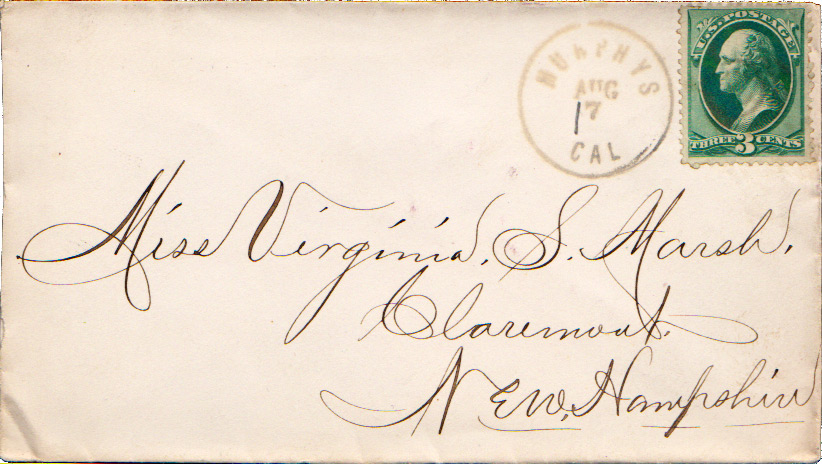 MURPHYS
AUG
17
CAL
U.S. POSTAGE
THREE 3 CENTS
Miss Virginia. S. Marsh.
Claremont.
New, Hampshire